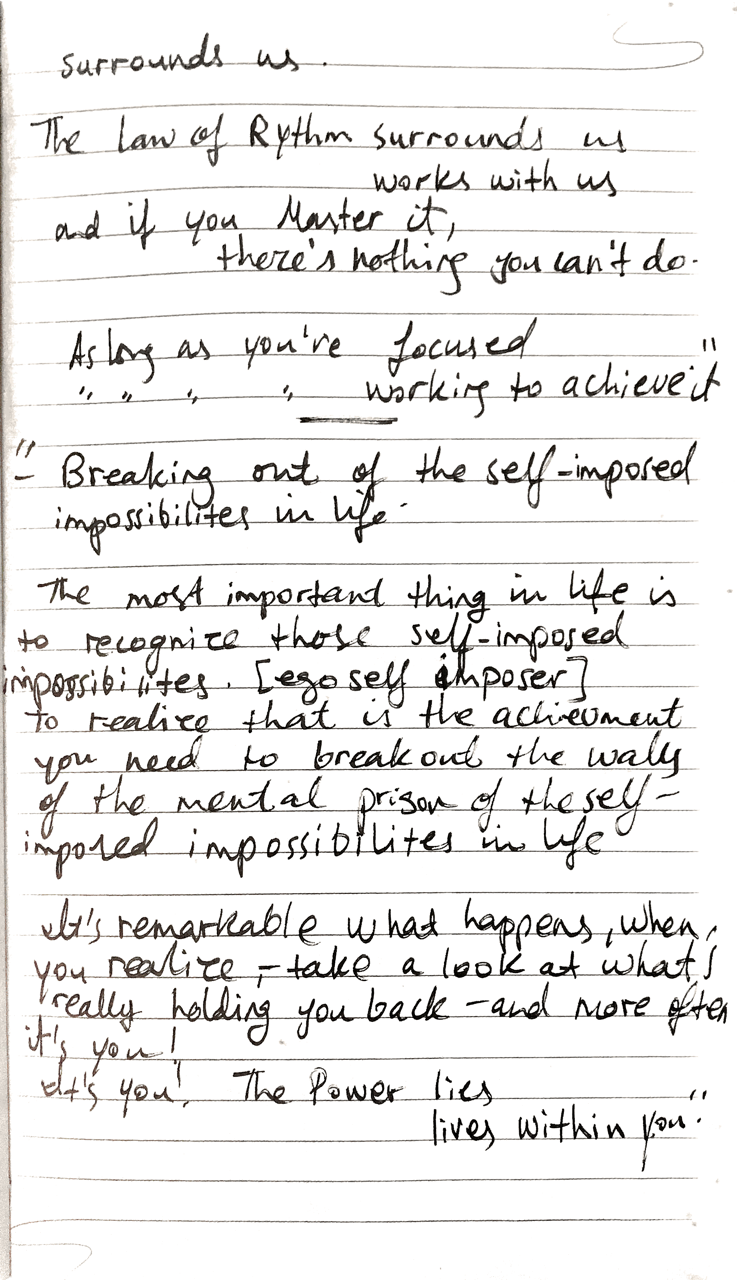 surrounds us.
The Law of Rythm surrounds us
works with us
and if you Master it,
there's nothing you can't do.
As long as you're focused
" " " " working to achieve it"
"- Breaking out of the self-imposed
impossibilites in life.
The most importand thing in life is
to recognize those self-imposed
impossibilites. [ego self imposer]
To realize that is the achievment
you need to break out the walls
of the mental prison of the self-
imposed impossibilites in life
It's remarkable what happens, when,
you realize, - take a look at what's
really holding you back - and more often
it's you!
It's you! The Power lies
lives within you."